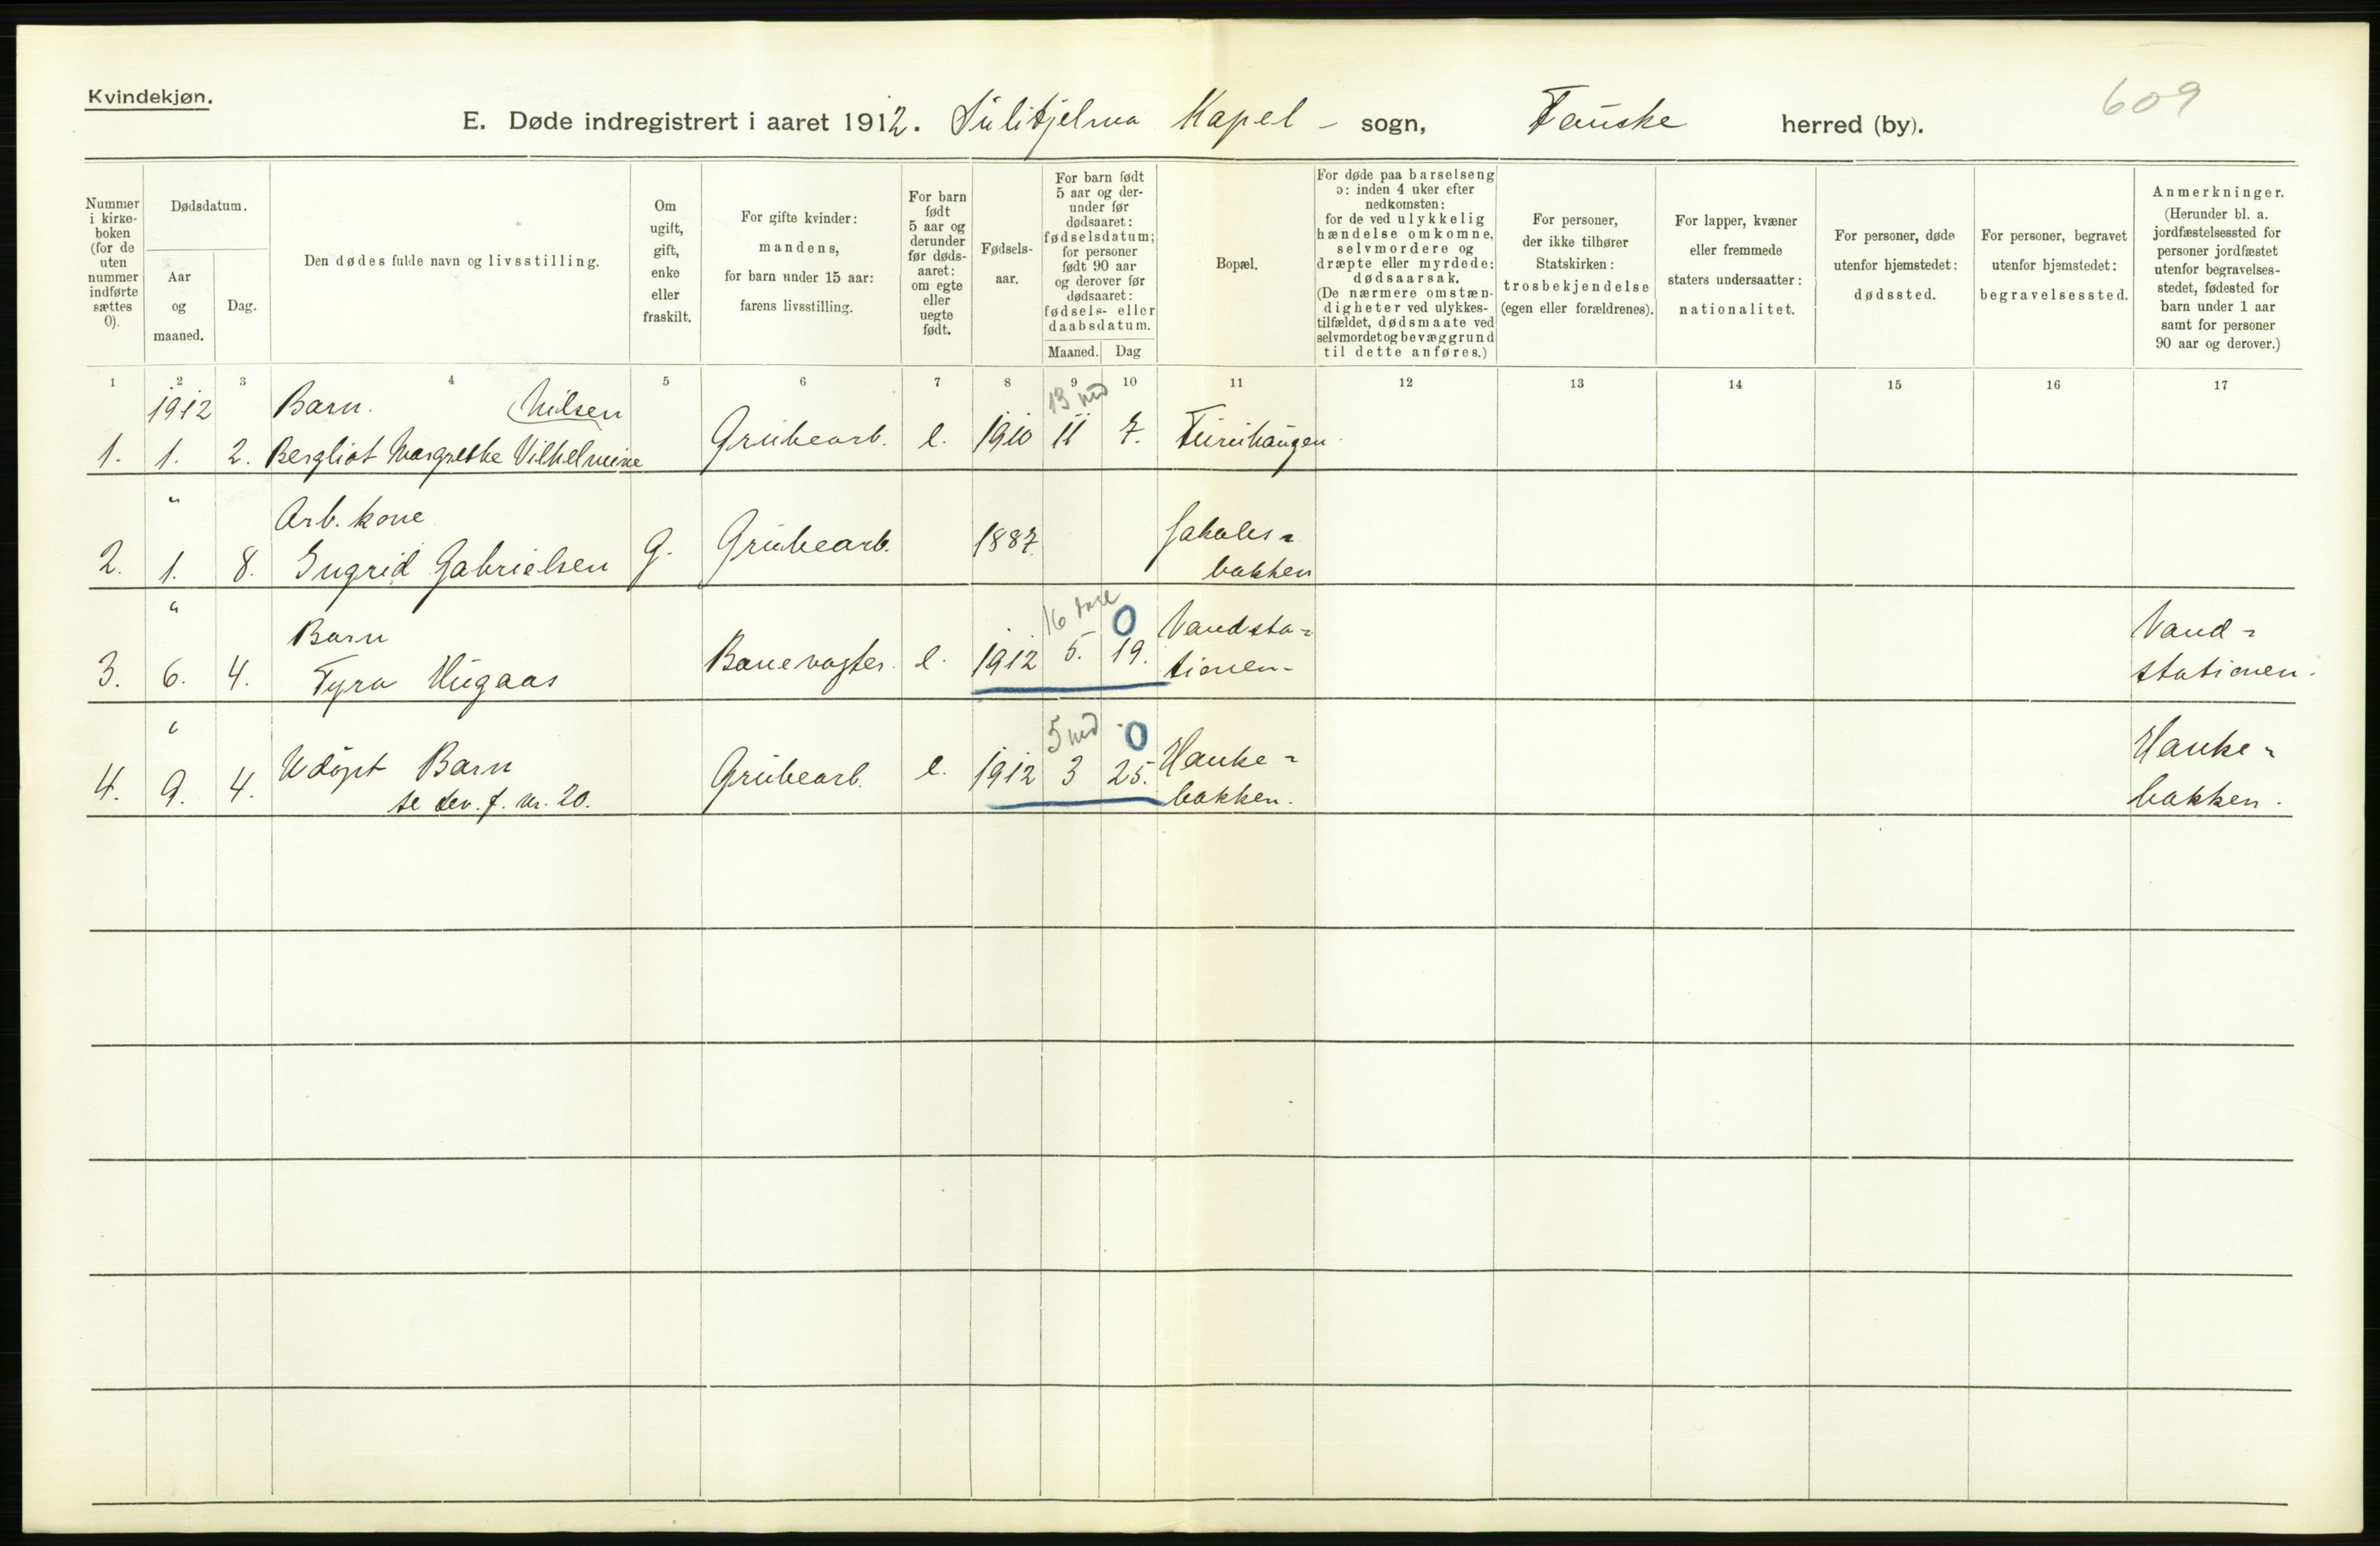 Kvindekjøn.
609
E. Døde indregistrert i aaret 1912. Sulitjelma Kapel - sogn, Fauske herred (by).
Nummer i kirkeboken (for de uten nummer indførte sættes 0).
Dødsdatum.
Aar og maaned.
Dag.
Den dødes fulde navn og livsstilling.
Om ugift, gift, enke eller fraskilt.
For gifte kvinder: mandens, for barn under 15 aar: farens livsstilling.
For barn født 5 aar og derunder før dødsaaret: om egte eller uegte født.
Fødselsaar.
For barn født 5 aar og derunder før dødsaaret: fødselsdatum; for personer født 90 aar og derover før dødsaaret: fødsels- eller daabsdatum.
Maaned. Dag
Bopæl.
For døde paa barselseng ɔ: inden 4 uker efter nedkomsten: for de ved ulykkelig hændelse omkomne, selvmordere og dræpte eller myrdede: dødsaarsak. (De nærmere omstændigheter ved ulykkestilfældet, dødsmaate ved selvmordet og bevæggrund til dette anføres.)
For personer, der ikke tilhører Statskirken: trosbekjendelse (egen eller forældrenes).
For lapper, kvæner eller fremmede staters undersaatter: nationalitet.
For personer, døde utenfor hjemstedet: dødssted.
For personer, begravet utenfor hjemstedet: begravelsessted.
Anmerkninger. (Herunder bl. a. jordfæstelsessted for personer jordfæstet utenfor begravelsesstedet, fødested for barn under 1 aar samt for personer 90 aar og derover.)
1 2 3 4 5 6 7 8 9 10 11 12 13 14 15 16 17
1912 Barn. Nilsen 13 md
1. 1. 2. Bergliot Margrethe Vilhelmine Grubearb. e. 1910 11 7. Furuhaugen
" Arb. kone
2. 1. 8. Ingrid Gabrielsen G. Grubearb. 1887. Jakobs=
bakken
" Barn 16 0 Vandsta= Vand=
3. 6. 4. Tyra Hugaas Banevogter. e. 1912 5. 19. tionen- stationen.
" Udøpt Barn 5 md 0 Hanke= Hanke=
4. 9. 4. se lev. f. nr. 20. Grubearb. e. 1912 3 25. bakken. bakken.